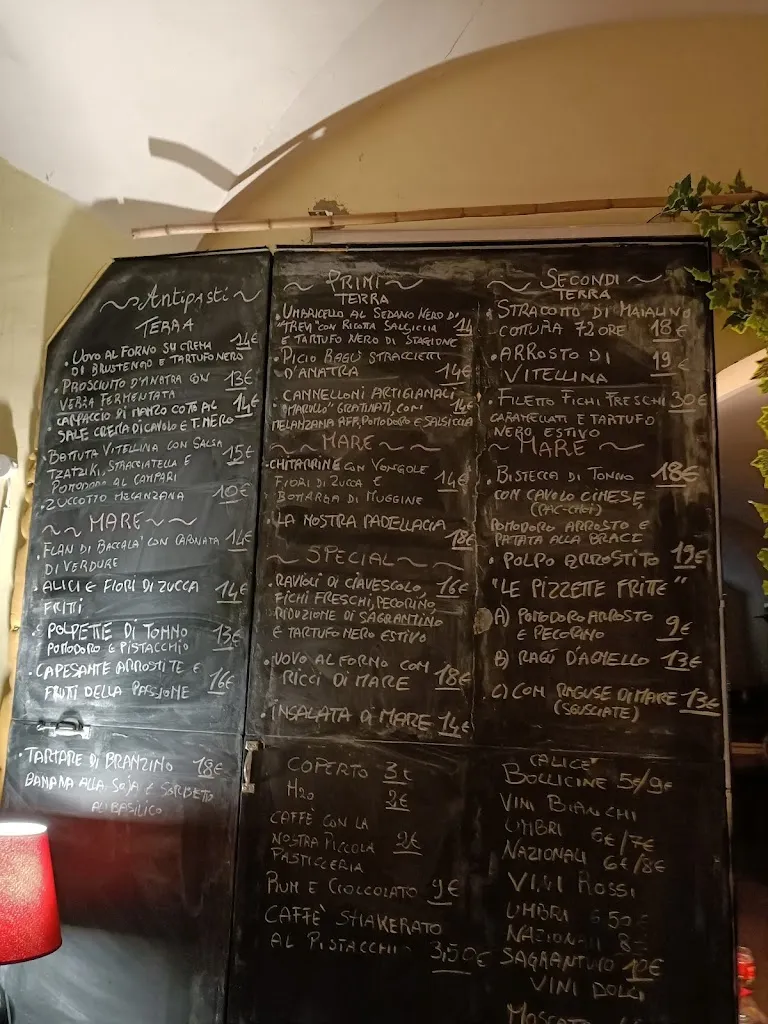 Antipasti
TERRA
• UOVO AL FORNO SU CREMA 14€
DI BRUSTENGO E TARTUFO NERO
• PROSCIUTO D'ANATRA CON 13€
VERZA FERMENTATA
• CARPACCIO DI MANZO COTTO AL 14€
SALE CREMA DI CAVOLO E T. NERO
• BATTUTA VITELLINA CON SALSA 15€
TZATZIKI, STRACCIATELLA E
POMODORO AL CAMPARI
• ZUCCOTTO MELANZANA 10€
~ MARE ~
• FLAN DI BACCALA' CON CAPONATA 14€
DI VERDURE
• ALICI E FIORI DI ZUCCA 14€
FRITTI
• POLPETTE DI TONNO 13€
POMODORO E PISTACCHIO
• CAPESANTE ARROSTITE E 16€
FRUTI DELLA PASSIONE
• TARTARE DI BRANZINO 18€
BANANA ALLA SOJA E SORBETO
AL BASILICO
~ PRIMI ~
TERRA
• UMBRICELLO AL SEDANO NERO DI
"TREVI" CON RICOTTA SALSICCIA 14
E TARTUFO NERO DI STAGIONE
• PICIO RAGÙ STRACCIETTI
D'ANATRA 14€
• CANNELLONI ARTIGIANALI
"MARULLO" GRATINATI, CON 14€
MELANZANA AFF, POMODORO E SALSICCIA
~ MARE ~
• CHITARRINE CON VONGOLE
FIORI DI ZUCCA E 14€
BOTTARGA DI MUGGINE
• LA NOSTRA PADELLACIA
18€
~ SPECIAL ~
• RAVIOLI DI CIAVESCOLO, 16€
FICHI FRESCHI, PECORINO
RIDUZIONE DI SAGRANTINO
E TARTUFO NERO ESTIVO
• UOVO AL FORNO CON
RICCI DI MARE 18€
• INSALATA DI MARE 14€
COPERTO 3€
H2O 2€
CAFFÈ CON LA
NOSTRA PICCOLA 2€
PASTICCERIA
RUM E CIOCCOLATO 9€
CAFFÈ SHAKERATO
AL PISTACCHIO 3,50€
~ SECONDI ~
TERRA
• STRACOTTO DI MAIALINO
COTTURA 72 ORE 18€
• ARROSTO DI 19€
VITELLINA
• FILETTO FICHI FRESCHI 30€
CARAMELLATI E TARTUFO
NERO ESTIVO
~ MARE ~
• BISTECCA DI TONNO 18€
CON CAVOLO CINESE
(PAC-CIOI)
POMODORO ARROSTO E
PATATA ALLA BRACE
• POLPO ARROSTITO 19€
"LE PIZZETTE FRITTE"
A) POMODORO ARROSTO
E PECORINO 9€
B) RAGÙ D'AGNELLO 13€
C) CON RAGUSE DI MARE 13€
(SGUSCIATE)
CALICE
BOLLICINE 5€/9€
VINI BIANCHI
UMBRI 6€/7€
NAZIONALI 6€/8€
VINI ROSSI
UMBRI 6 50€
NAZIONALI 8€
SAGRANTINO 10€
VINI DOLCI
MOSCATO